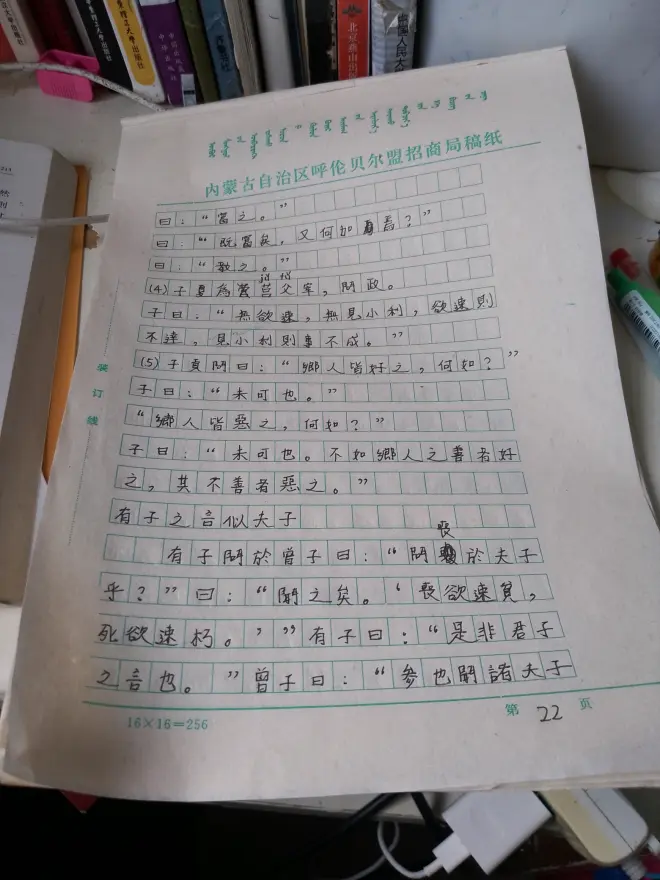 内蒙古自治区呼伦贝尔盟招商局稿纸
曰：“富之。”
曰：“既富矣，又何加焉？”
曰：“教之。”
(4)子夏為莒父宰，問政。
子曰：“無欲速，無見小利，欲速則
不達，見小利則事不成。”
(5)子貢問曰：“鄉人皆好之，何如？”
子曰：“未可也。”
“鄉人皆惡之，何如？”
子曰：“未可也。不如鄉人之善者好
之，其不善者惡之。”
有子之言似夫子
有子問於曾子曰：“問喪於夫子
乎？”曰：“聞之矣。‘喪欲速貧，
死欲速朽。’”有子曰：“是非君子
之言也。”曾子曰：“參也聞諸夫子
16×16=256
第 22 页
装订线